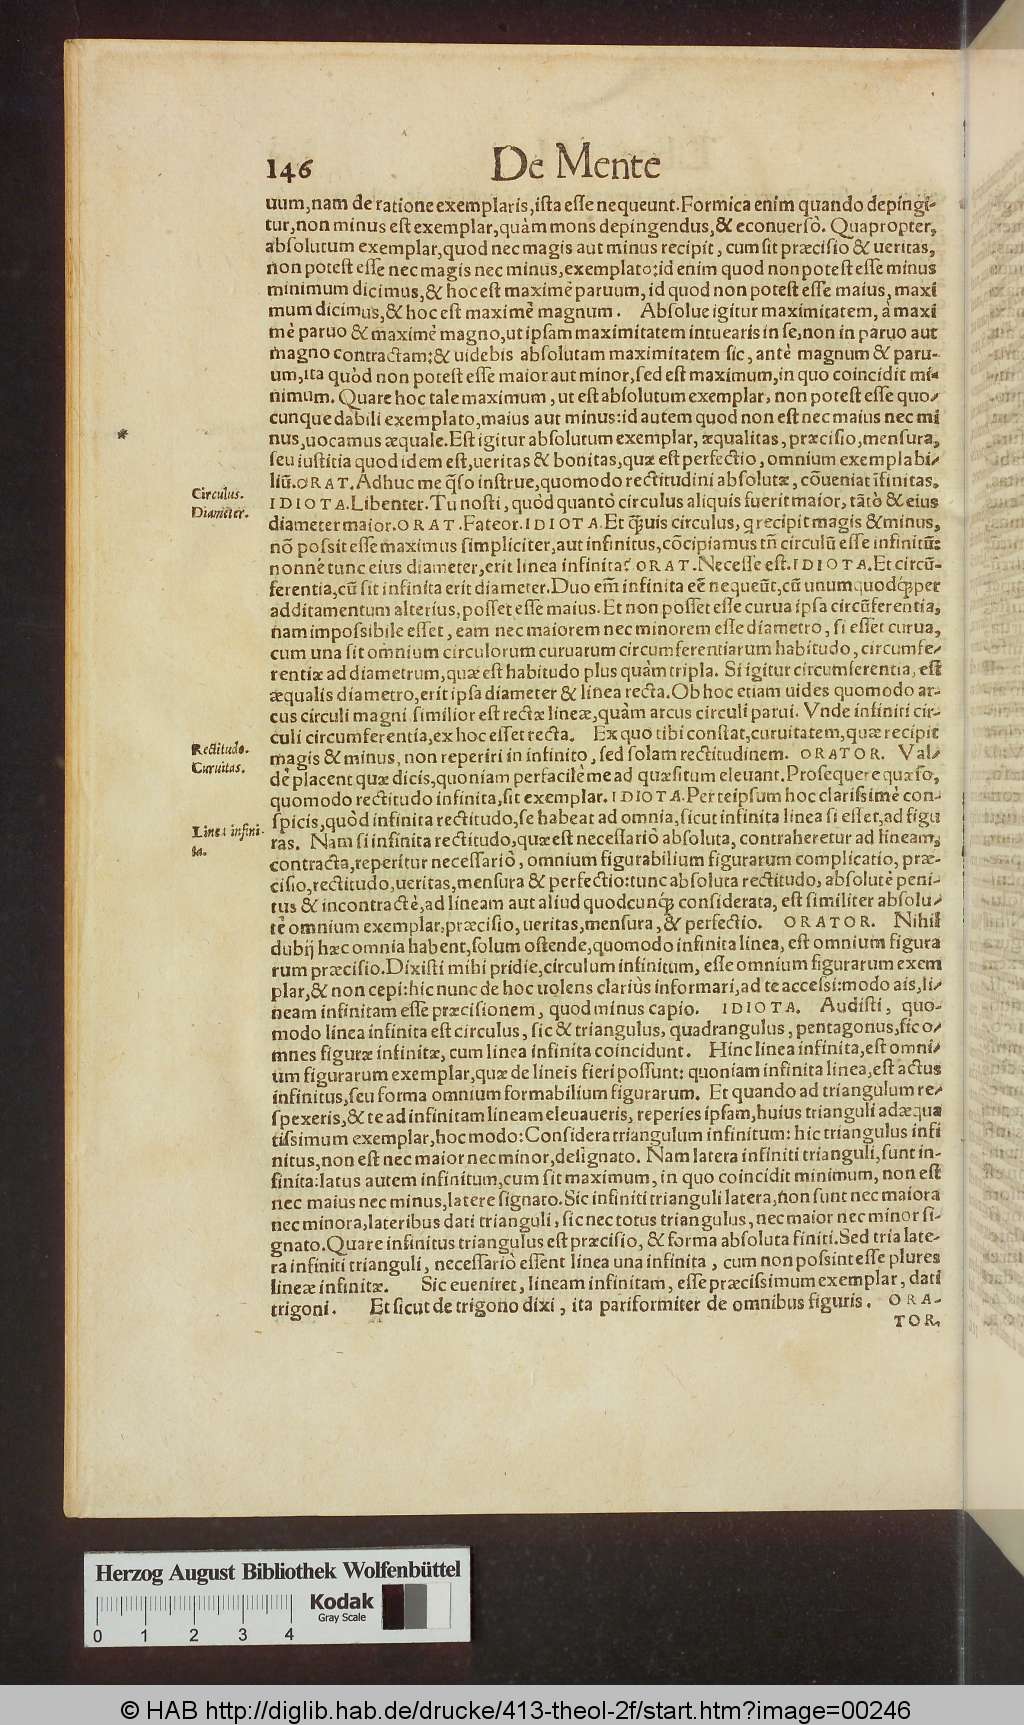 146 De Mente
uum,nam de ratione exemplaris,ista esse nequeunt.Formica enim quando depingi-
tur,non minus est exemplar,quàm mons depingendus,& econuersò. Quapropter,
absolutum exemplar,quod nec magis aut minus recipit, cum sit præcisio & ueritas,
non potest esse nec magis nec minus,exemplato:id enim quod non potest esse minus
minimum dicimus,& hoc est maximè paruum, id quod non potest esse maius, maxi
mum dicimus,& hoc est maximè magnum. Absolue igitur maximitatem, à maxi
mè paruo & maximè magno,ut ipsam maximitatem intuearis in se,non in paruo aut
magno contractam:& uidebis absolutam maximitatem sic, antè magnum & paru-
um,ita quòd non potest esse maior aut minor,sed est maximum,in quo coincidit mi-
nimum. Quare hoc tale maximum, ut est absolutum exemplar, non potest esse quo-
cunque dabili exemplato,maius aut minus:id autem quod non est nec maius nec mi
nus,uocamus æquale.Est igitur absolutum exemplar, æqualitas, præcisio,mensura,
seu iustitia quod idem est,ueritas & bonitas,quæ est perfectio, omnium exemplabi-
liũ.ORAT. Adhuc me q̃so instrue,quomodo rectitudini absolutæ, cõueniat ĩfinitas.
Circulus.
Diameter.
IDIOTA.Libenter. Tu nosti, quòd quantò circulus aliquis fuerit maior, tãtò & eius
diameter maior.ORAT.Fateor.IDIOTA.Et q̃uis circulus, q recipit magis & minus,
nõ possit esse maximus simpliciter,aut infinitus,cõcipiamus tñ circulũ esse infinitũ:
nonnè tunc eius diameter,erit linea infinita? ORAT.Necesse est.IDIOTA.Et circũ-
ferentia,cũ sit infinita erit diameter.Duo em̃ infinita eẽ nequeũt,cũ unumquodq̃ per
additamentum alterius, posset esse maius. Et non posset esse curua ipsa circũferentia,
nam impossibile esset, eam nec maiorem nec minorem esse diametro, si esset curua,
cum una sit omnium circulorum curuarum circumferentiarum habitudo, circumfe-
rentiæ ad diametrum,quæ est habitudo plus quàm tripla. Si igitur circumferentia, est
æqualis diametro,erit ipsa diameter & linea recta.Ob hoc etiam uides quomodo ar-
cus circuli magni similior est rectæ lineæ,quàm arcus circuli parui. Vnde infiniti cir-
culi circumferentia,ex hoc esset recta. Ex quo tibi constat,curuitatem,quæ recipit
Rectitudo.
Curuitas.
magis & minus, non reperiri in infinito, sed solam rectitudinem. ORATOR. Val
dè placent quæ dicis,quoniam perfacilè me ad quæsitum eleuant.Prosequere quæso,
quomodo rectitudo infinita,sit exemplar.IDIOTA.Per teipsum hoc clarissimè con-
Linea infini-
ta.
spicis,quòd infinita rectitudo,se habeat ad omnia,sicut infinita linea si esset,ad figu
ras. Nam si infinita rectitudo,quæ est necessariò absoluta, contraheretur ad lineam,
contracta,reperitur necessariò, omnium figurabilium figurarum complicatio, præ-
cisio,rectitudo,ueritas,mensura & perfectio:tunc absoluta rectitudo, absolutè peni-
tus & incontractè,ad lineam aut aliud quodcunq̃ considerata, est similiter absolu-
tè omnium exemplar,præcisio, ueritas,mensura, & perfectio. ORATOR. Nihil
dubij hæc omnia habent,solum ostende,quomodo infinita linea, est omnium figura
rum præcisio.Dixisti mihi pridie,circulum infinitum, esse omnium figurarum exem
plar,& non cepi:hic nunc de hoc uolens clariùs informari,ad te accessi:modo ais,li-
neam infinitam esse præcisionem, quod minus capio. IDIOTA. Audisti, quo-
modo linea infinita est circulus, sic & triangulus, quadrangulus, pentagonus,sic o-
mnes figuræ infinitæ, cum linea infinita coincidunt. Hinc linea infinita,est omni-
um figurarum exemplar,quæ de lineis fieri possunt: quoniam infinita linea,est actus
infinitus,seu forma omnium formabilium figurarum. Et quando ad triangulum re-
spexeris,& te ad infinitam lineam eleuaueris, reperies ipsam,huius trianguli adæqua
tissimum exemplar,hoc modo:Considera triangulum infinitum: hic triangulus infi
nitus,non est nec maior nec minor,designato. Nam latera infiniti trianguli,sunt in-
finita:latus autem infinitum,cum sit maximum, in quo coincidit minimum, non est
nec maius nec minus,latere signato.Sic infiniti trianguli latera,non sunt nec maiora
nec minora,lateribus dati trianguli, sic nec totus triangulus, nec maior nec minor si-
gnato.Quare infinitus triangulus est præcisio, & forma absoluta finiti.Sed tria late-
ra infiniti trianguli, necessariò essent linea una infinita, cum non possint esse plures
lineæ infinitæ. Sic eueniret, lineam infinitam, esse præcissimum exemplar, dati
trigoni. Et sicut de trigono dixi, ita pariformiter de omnibus figuris. ORA-
TOR.
Herzog August Bibliothek Wolfenbüttel
Kodak
Gray Scale
0 1 2 3 4
© HAB http://diglib.hab.de/drucke/413-theol-2f/start.htm?image=00246